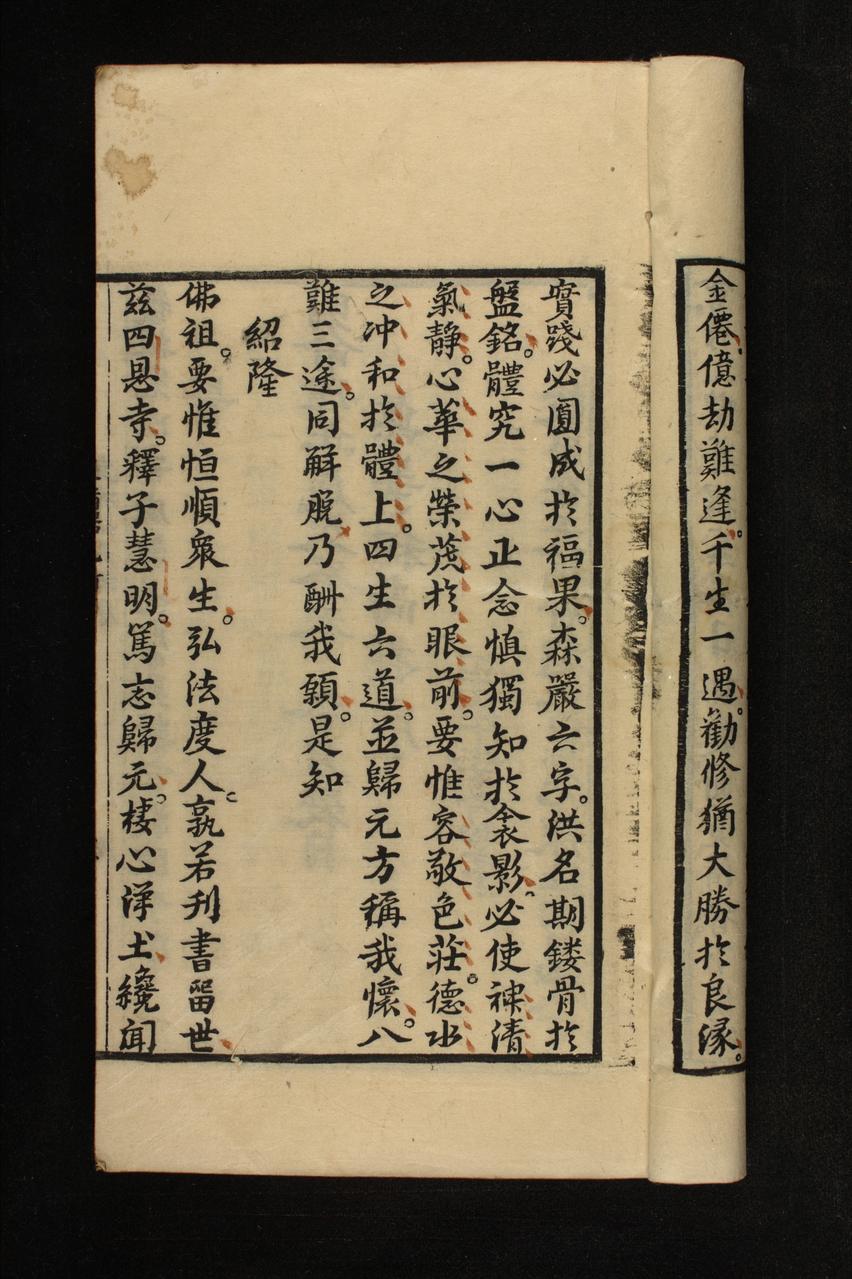 金僊億劫難逢。千生一遇。勸修猶大勝於良縁。
實踐必圓成於福果。森嚴六字。洪名期鏤骨於
盤銘。體究一心正念慎獨知於衾影。必使神清
氣靜。心華之榮茂於眼前。要惟容敬色莊。德水
之冲和於體上。四生六道。並歸元方稱我懷。八
難三途。同解脫乃酬我願。是知
紹隆
佛祖。要惟恒順衆生。弘法度人。孰若刊書留世
兹四恩寺。釋子慧明。篤志歸元。棲心淨土。纔聞